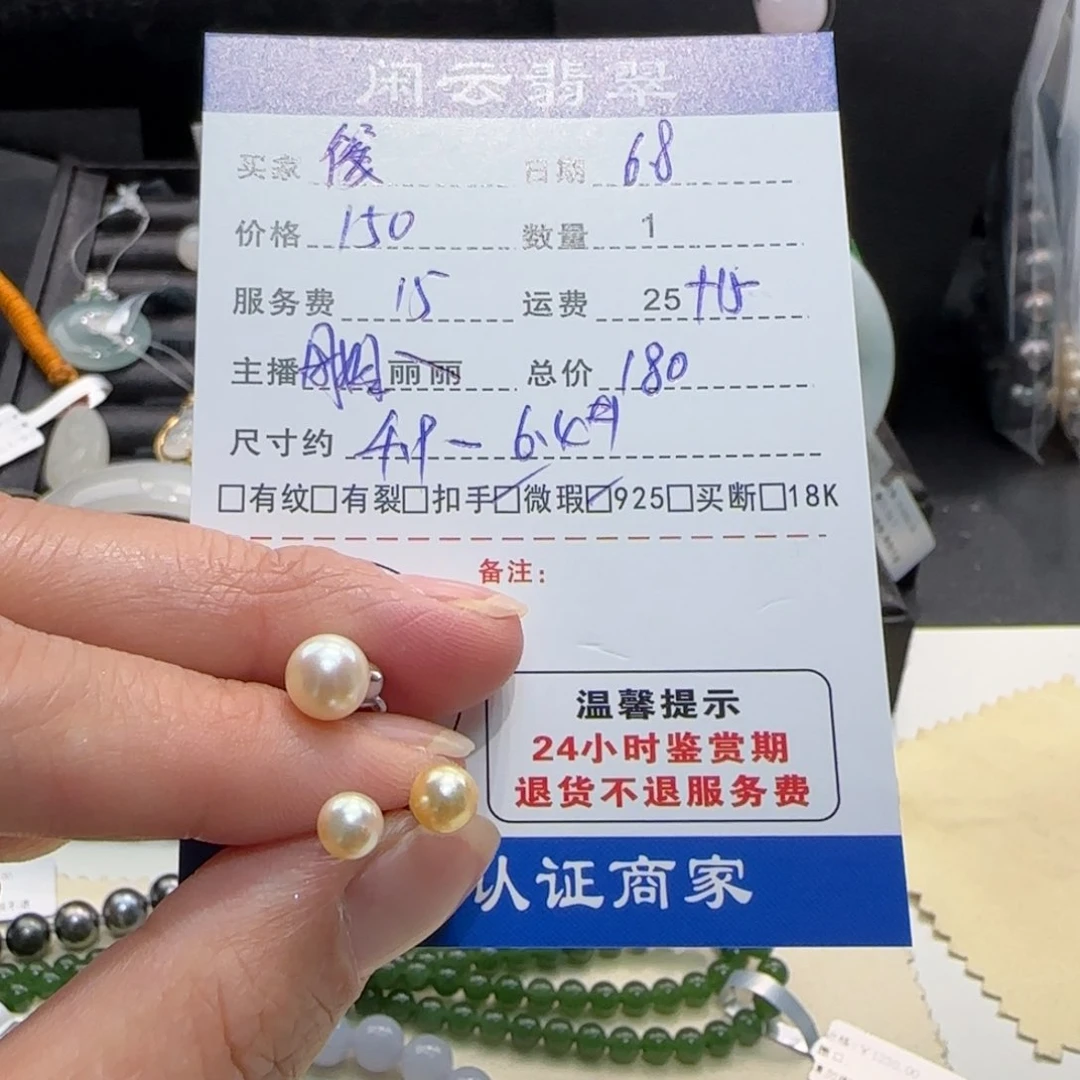 闲云翡翠
买家 日期 68
价格 150 数量 1
服务费 15 运费 25+15
主播 丽丽 总价 180
尺寸约 4.9-6.4
□有纹□有裂□扣手☑微瑕☑925□买断□18K
备注：
温馨提示
24小时鉴赏期
退货不退服务费
认证商家